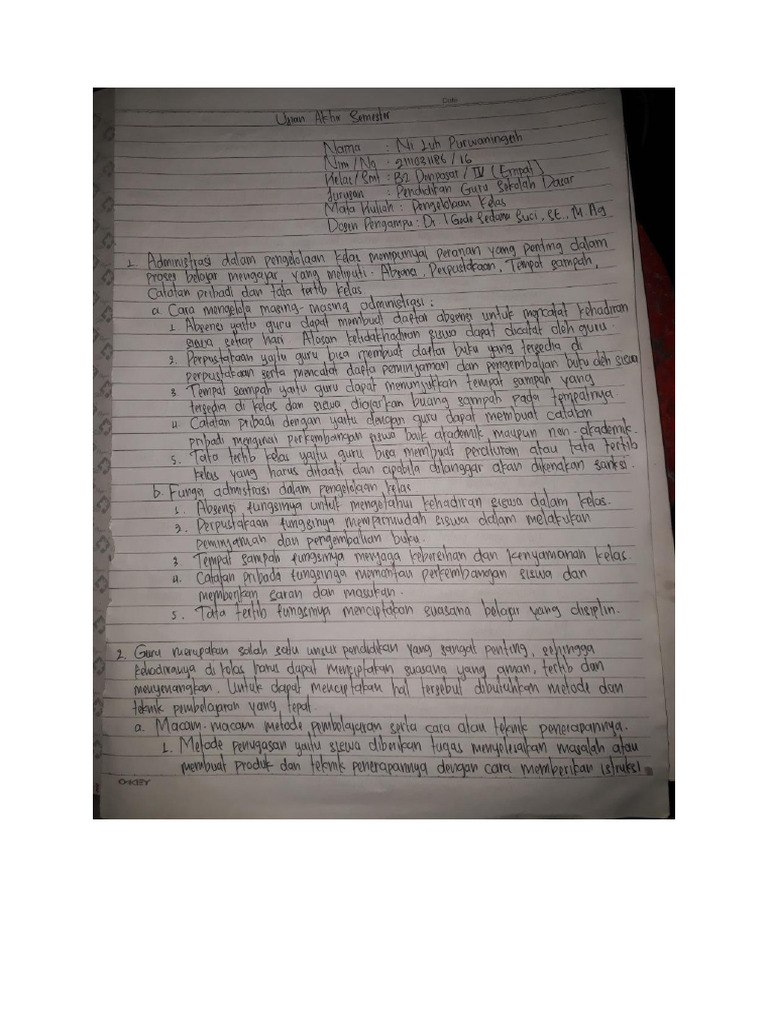 Date
Ujian Akhir Semester
Nama : Ni Luh Purwaningsih
Nim/No : 2111031186 / 16
Kelas/Smt : B2 Denpasar / IV (Empat)
Jurusan : Pendidikan Guru Sekolah Dasar
Mata Kuliah : Pengelolaan Kelas
Dosen Pengampu : Dr. I Gede Sedana Suci, SE., M Ag
1. Administrasi dalam pengelolaan kelas mempunyai peranan yang penting dalam
proses belajar mengajar, yang meliputi : Absensi, Perpustakaan, Tempat sampah,
Catatan pribadi dan tata tertib kelas.
a. Cara mengelola masing-masing administrasi :
1. Absensi yaitu guru dapat membuat daftar absensi untuk mencatat kehadiran
siswa setiap hari. Alasan ketidakhadiran siswa dapat dicatat oleh guru.
2. Perpustakaan yaitu guru bisa membuat daftar buku yang tersedia di
perpustakaan serta mencatat dafta peminjaman dan pengembalian buku oleh siswa
3 Tempat sampah yaitu guru dapat menunjukkan tempat sampah yang
tersedia di kelas dan siswa diajarkan buang sampah pada tempatnya
4 Catatan pribadi dengan yaitu dengan guru dapat membuat catatan
pribadi mengenai perkembangan siswa baik akademik maupun non-akademik.
5. Tata tertib kelas yaitu guru bisa membuat peraturan atau tata tertib
kelas yang harus ditaati dan apabila dilanggar akan dikenakan sanksi.
b. Fungsi admistrasi dalam pengelolaan kelas
1. Absensi fungsinya untuk mengetahui kehadiran siswa dalam kelas.
2. Perpustakaan fungsinya mempermudah siswa dalam melakukan
peminjaman dan pengembalian buku.
3. Tempat sampah fungsinya menjaga kebersihan dan kenyamanan kelas
4. Catatan pribada fungsinya memantau perkembangan siswa dan
memberikan saran dan masukan.
5. Tata tertib fungsinya menciptakan suasana belajar yang disiplin.
2. Guru merupakan salah satu unsur pendidikan yang sangat penting, sehingga
kehadirannya di kelas harus dapat menciptakan suasana yang aman, tertib dan
menyenangkan. Untuk dapat menciptakan hal tersebut dibutuhkan metode dan
teknik pembelajaran yang tepat.
a. Macam-macam metode pembelajaran serta cara atau teknik penerapannya.
1. Metode penugasan yaitu siswa diberikan tugas menyelesaikan masalah atau
membuat produk dan teknik penerapannya dengan cara memberikan istruksi